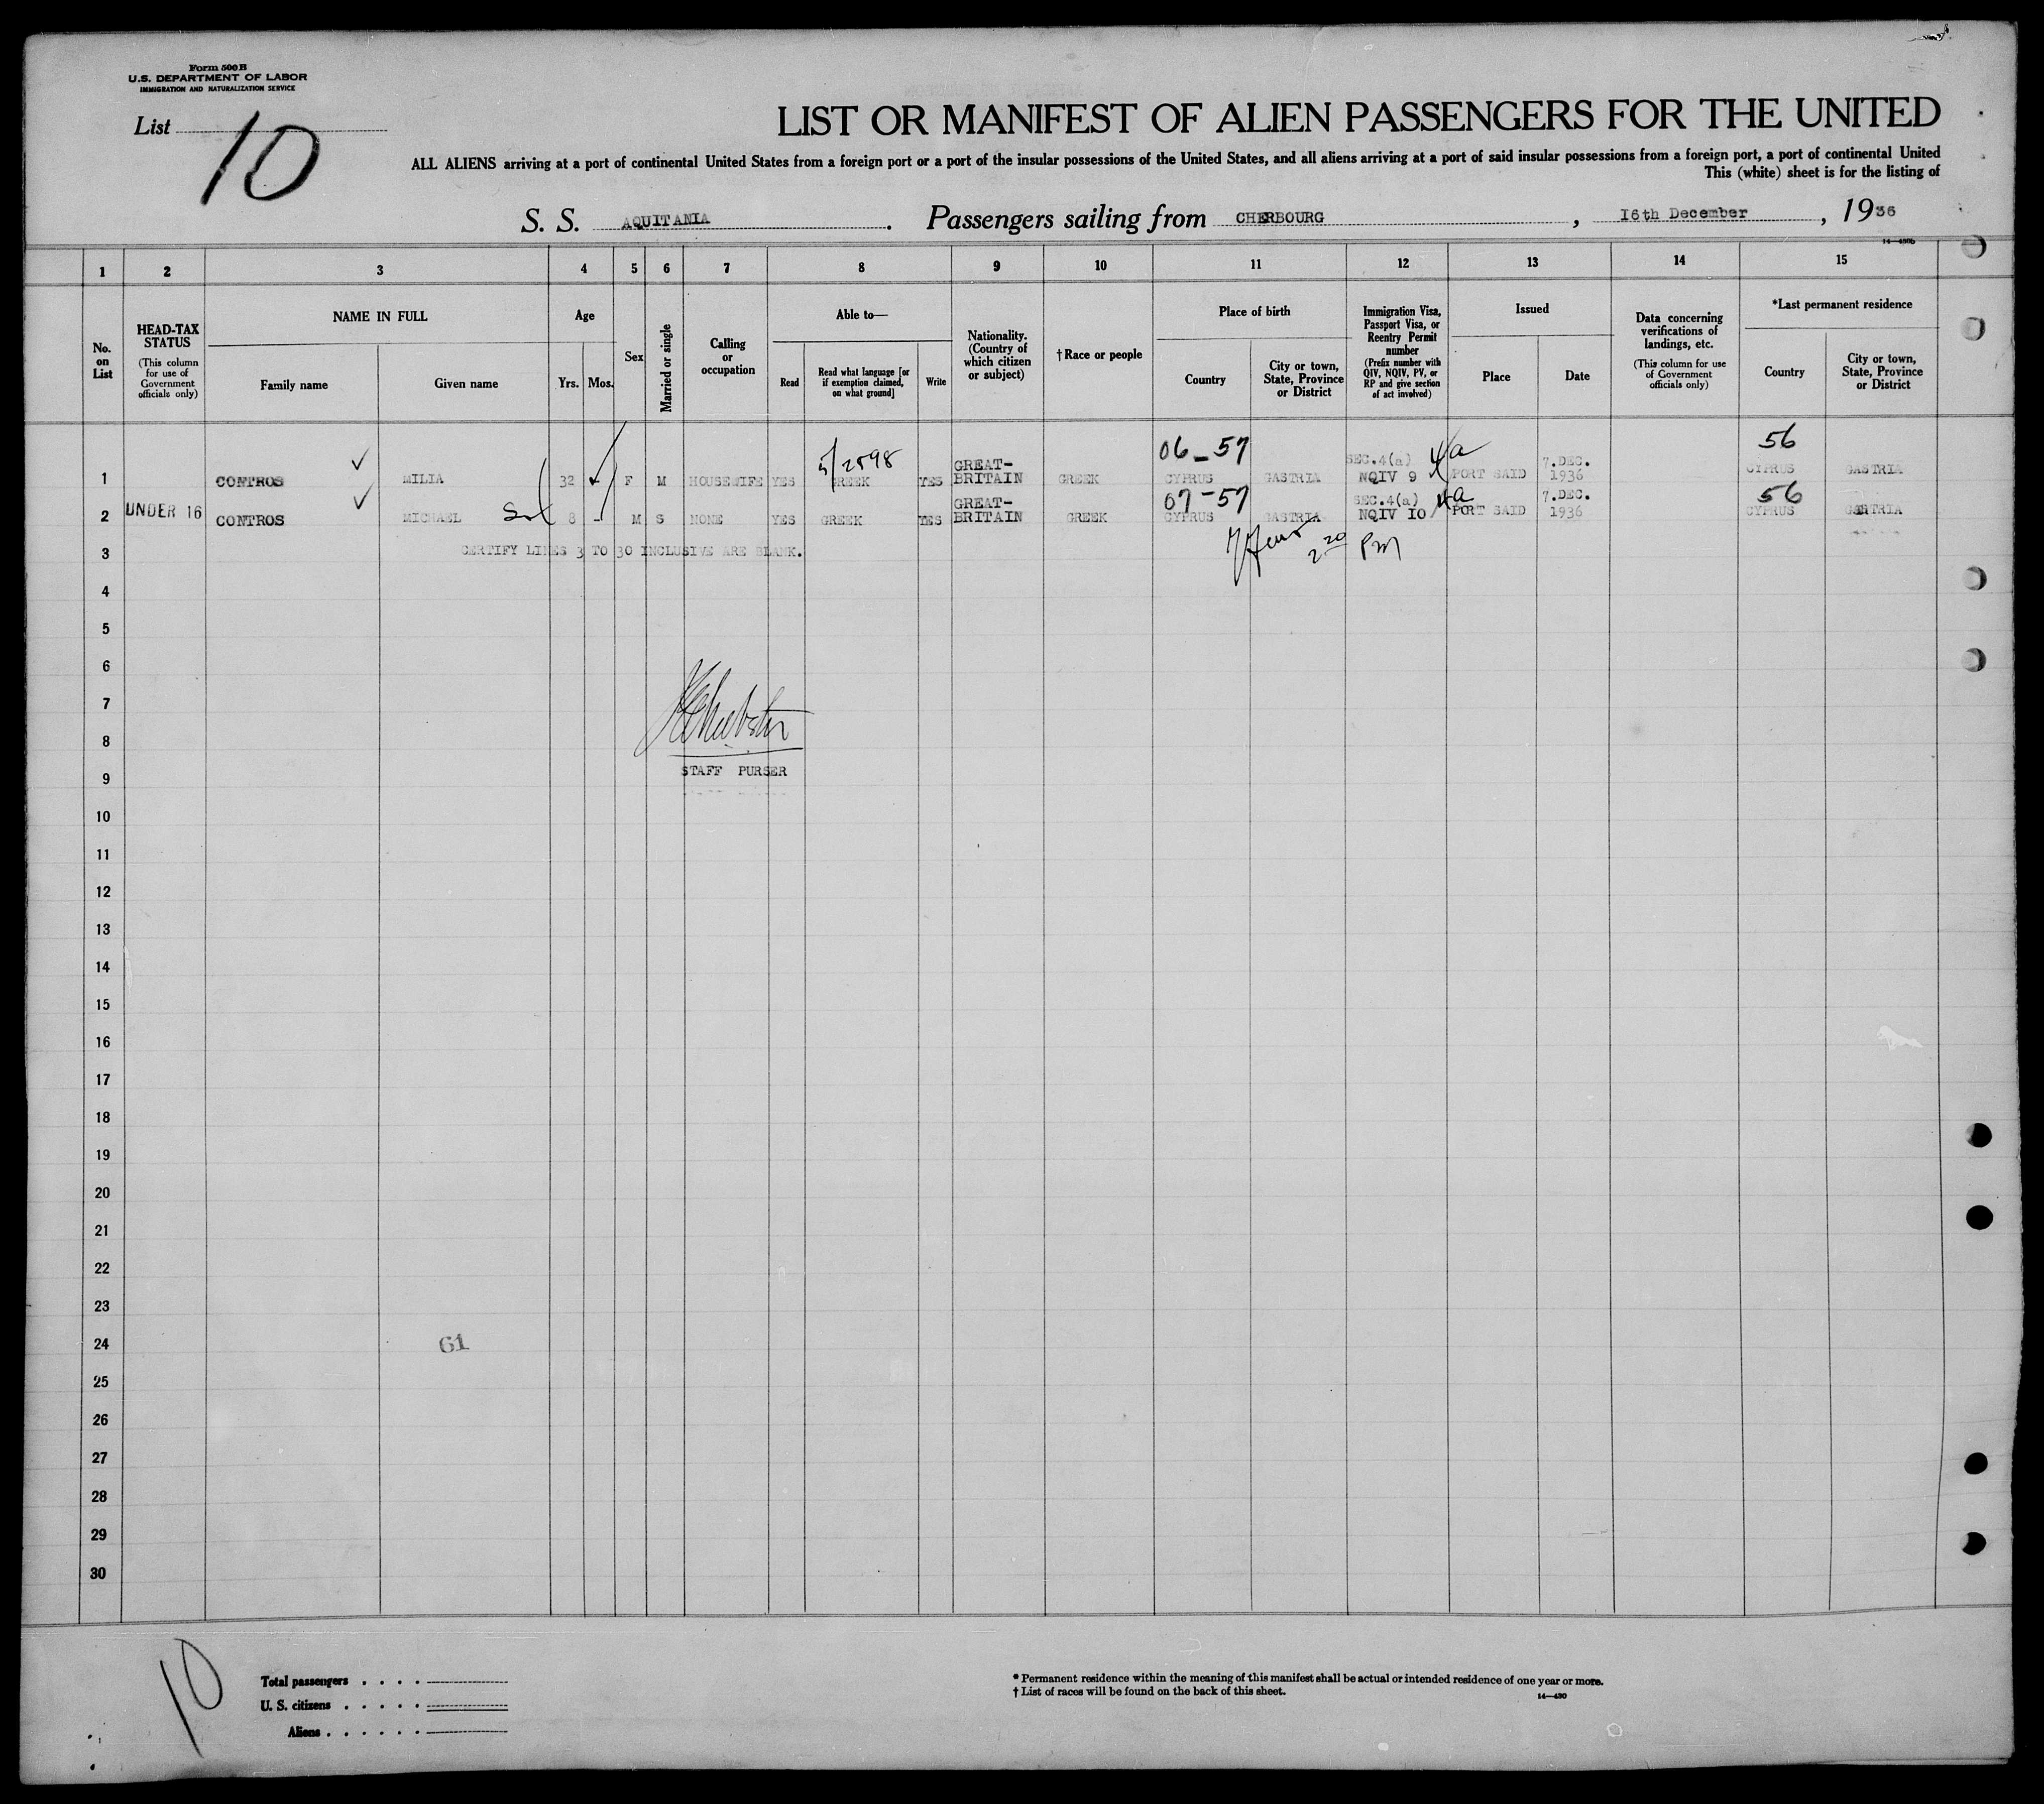 Form 500 B
U.S. DEPARTMENT OF LABOR
IMMIGRATION AND NATURALIZATION SERVICE
List 10
LIST OR MANIFEST OF ALIEN PASSENGERS FOR THE UNITED
ALL ALIENS arriving at a port of continental United States from a foreign port or a port of the insular possessions of the United States, and all aliens arriving at a port of said insular possessions from a foreign port, a port of continental United
This (white) sheet is for the listing of
S. S. AQUITANIA. Passengers sailing from CHERBOURG, 16th December, 1936
14—430b
1 2 3 4 5 6 7 8 9 10 11 12 13 14 15
No. on List
HEAD-TAX STATUS
(This column for use of Government officials only)
NAME IN FULL
Family name
Given name
Age
Yrs. Mos.
Sex
Married or single
Calling or occupation
Able to—
Read
Read what language [or if exemption claimed, on what ground]
Write
Nationality. (Country of which citizen or subject)
†Race or people
Place of birth
Country
City or town, State, Province or District
Immigration Visa, Passport Visa, or Reentry Permit number
(Prefix number with QIV, NQIV, PV, or RP and give section of act involved)
Issued
Place
Date
Data concerning verifications of landings, etc.
(This column for use of Government officials only)
*Last permanent residence
Country
City or town, State, Province or District
5/2598 06-57 4a 56
1 CONTROS MILIA 32 F M HOUSEWIFE YES GREEK YES GREAT-BRITAIN GREEK CYPRUS GASTRIA SEC.4(a) NQIV 9 PORT SAID 7.DEC. 1936 CYPRUS GASTRIA
07-57 4a 56
2 UNDER 16 CONTROS MICHAEL 8 - M S NONE YES GREEK YES GREAT-BRITAIN GREEK CYPRUS GASTRIA SEC.4(a) NQIV 10 PORT SAID 7.DEC. 1936 CYPRUS GASTRIA
3 CERTIFY LINES 3 TO 30 INCLUSIVE ARE BLANK.
2 20 PM
4
5
6
7
8
STAFF PURSER
9
10
11
12
13
14
15
16
17
18
19
20
21
22
23
24 61
25
26
27
28
29
30
10
Total passengers
U. S. citizens
Aliens
* Permanent residence within the meaning of this manifest shall be actual or intended residence of one year or more.
† List of races will be found on the back of this sheet.
14—430